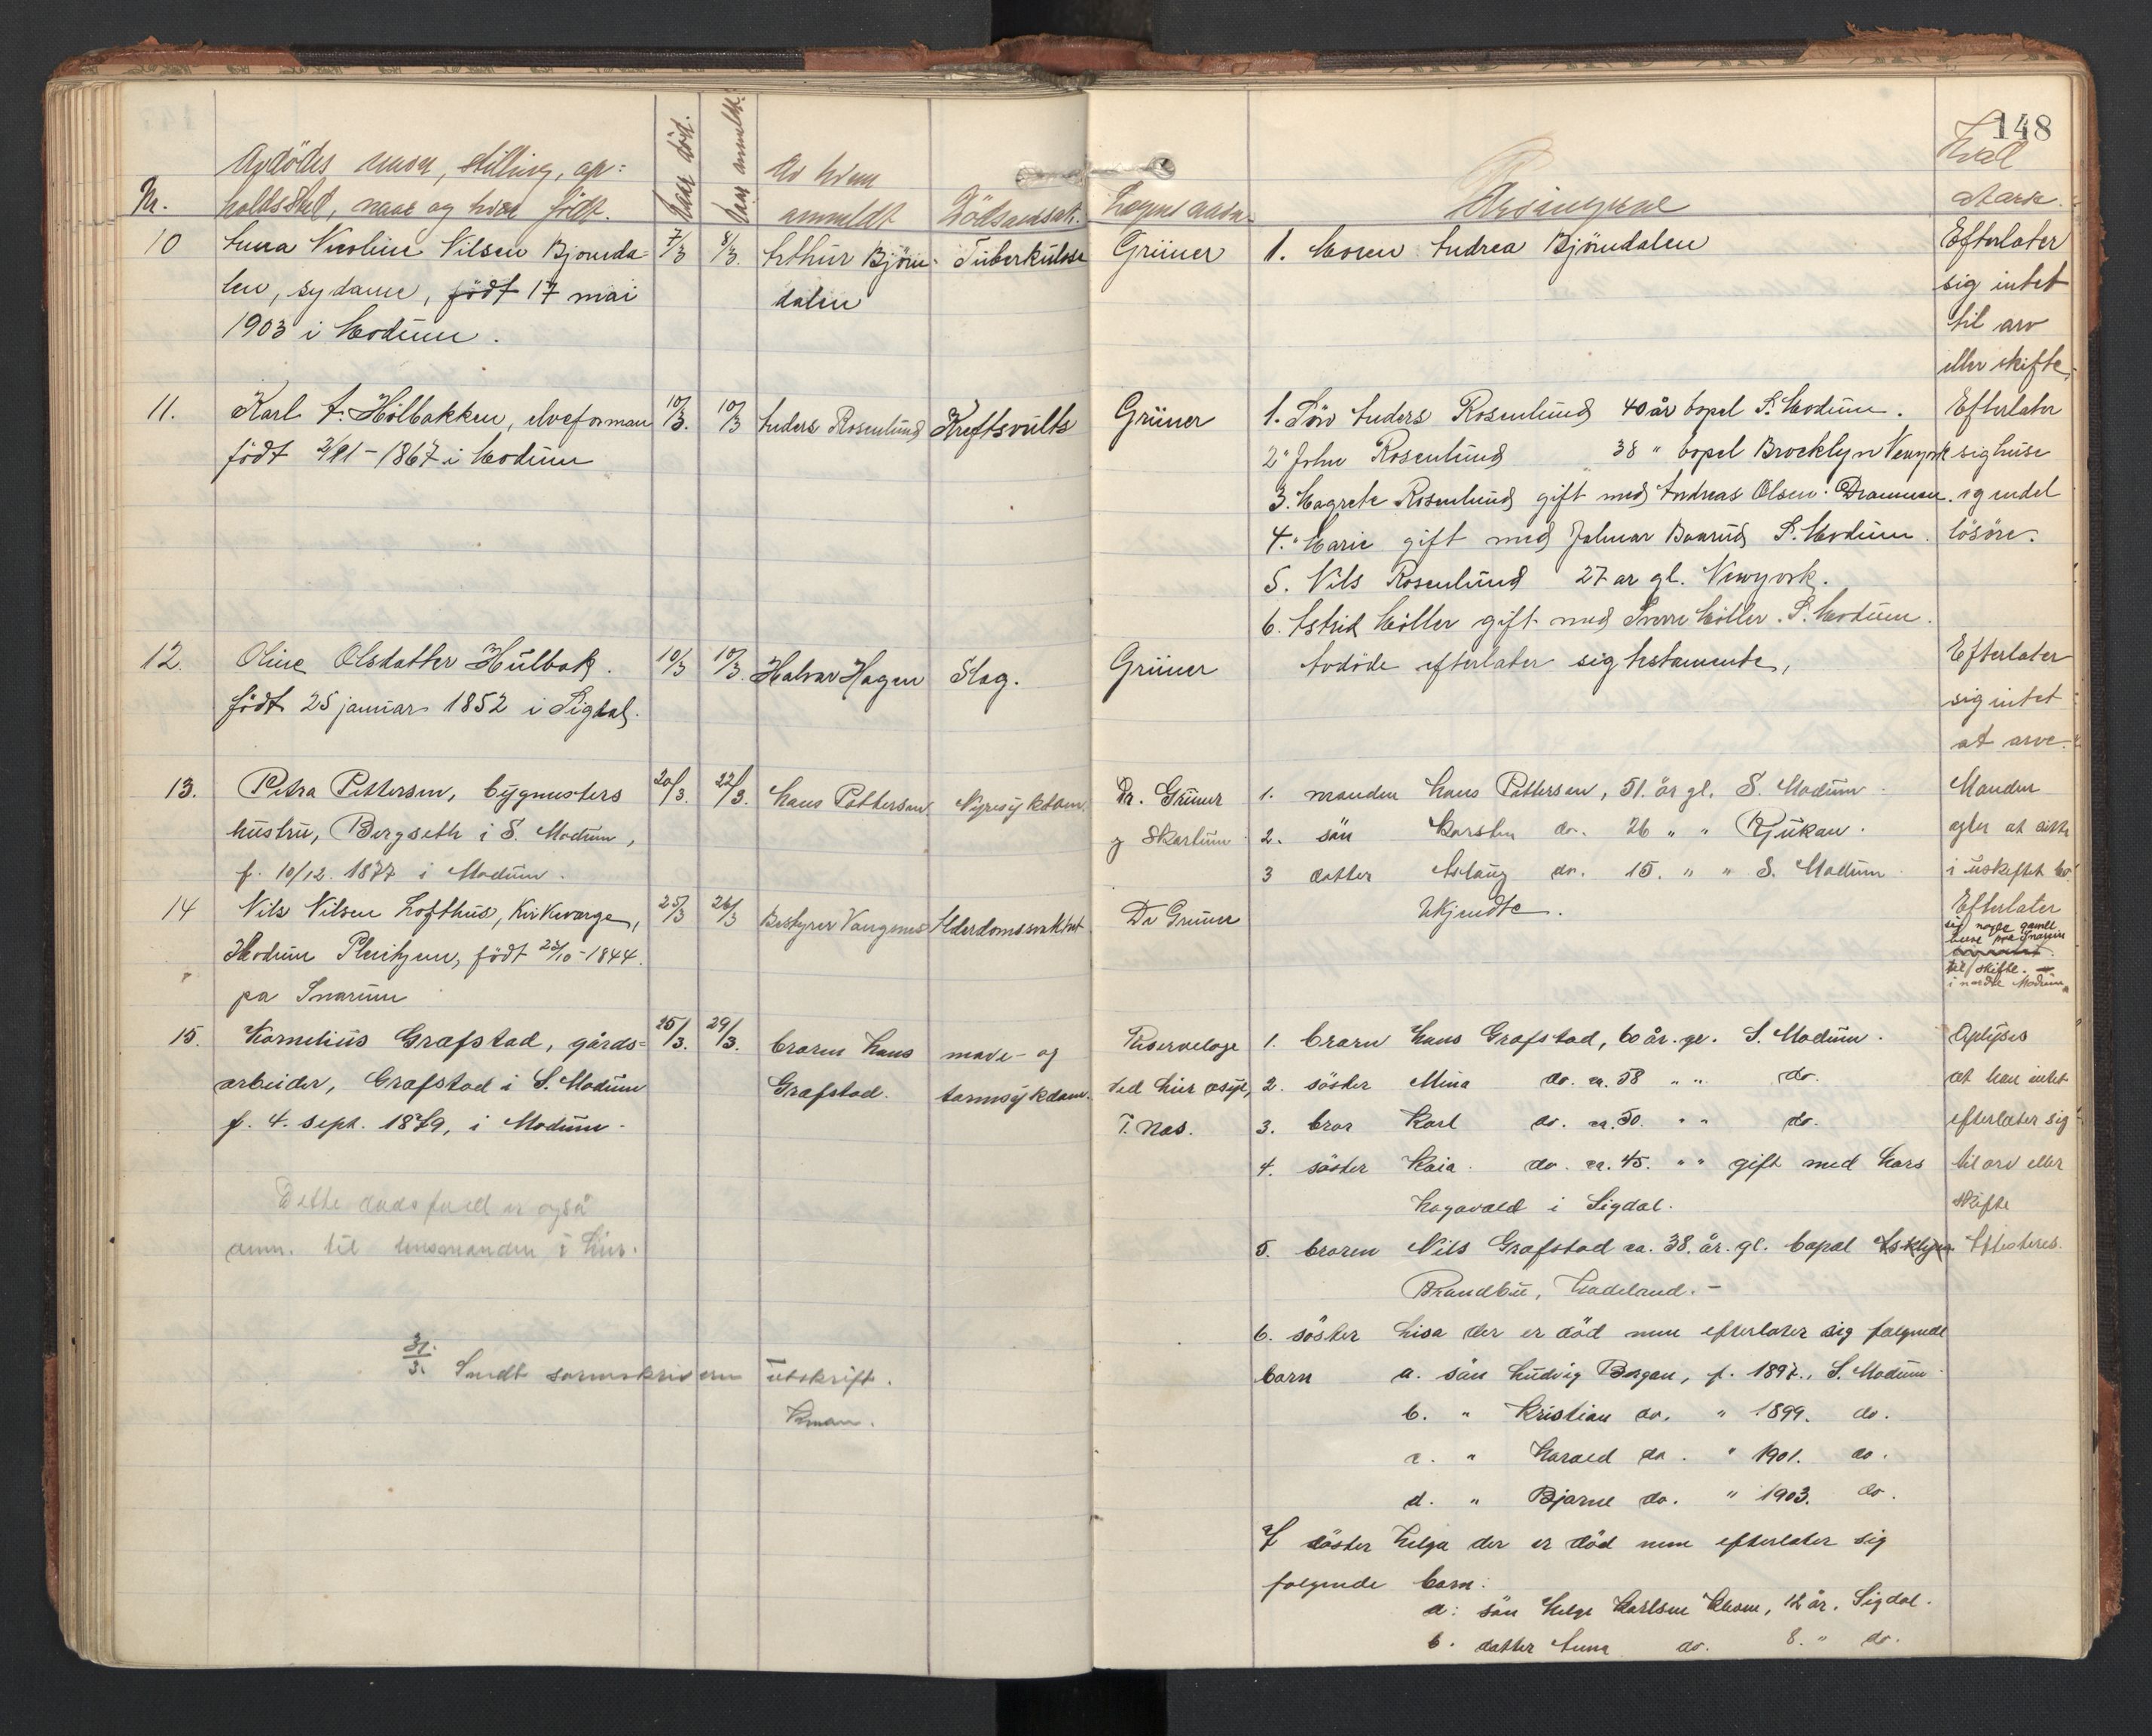 148
Nr.
Avdödes navn, stilling, op=
holdssted, naar og hvor födt.
Naar död.
Naar anmeldt.
Av hvem
anmeldt
Dödsaarsak.
Lægens navn.
Arvingene
10 Anna Nicoline Nilsen Bjørnda- 7/3 8/3. Arthur Björn- Tuberkulose Grüner 1. Moren Andrea Björndalen Efterlater
len, sydame, födt 17 mai dalen sig intet
1903 i Modum. til arv
eller skifte.
11. Karl A. Hölbakken, elveforman 10/3. 10/3 Anders Rosenlund Kreftsvulst Grüner 1. Sön Anders Rosenlund 40 år bopel S. Modum. Efterlater
födt 2/11-1867 i Modum 2" John Rosenlund 38 " bopel Brocklyn Newyork sig huse
3. Magrete Rosenlund gift med Andreas Olsen. Drammen. og endel
4." Marie gift med Jalmar Baarud S. Modum. lösöre.
5. Nils Rosenlund 27 ar gl. Newyork.
6. Astrid Möller gift med Sverre Möller. S. Modum.
12. Oline Olsdatter Hülbak. 10/3 10/3. Halvar Hagen Slag. Grüner Avdöde efterlater sig testamente, Efterlater
födt 25 januar 1852 i Sigdal. sig intet
at arve.
13. Petra Pettersen, bygmesters 20/3. 22/3. Hans Pettersen. Nyresykdom. Dr. Grüner 1. manden Hans Pettersen, 51. år gl. S. Modum. Manden
hustru, Bergseth i S. Modum, og Skartum 2. sön Karsten do. 26 " " Rjukan. agter at sitte
f. 10/12. 1877 i Modum. 3 datter Aslaug do. 15. " " S. Modum i uskiftet bo.
14 Nils Nilsen Lofthus, Kirkverge, 25/3 26/3 Bestyrer Vangsnes Alderdomssvakhet Dr Grüner Ukjendte. Efterlater
Modum Pleiehjem, födt 23/10-1844. sig nogle gamle
pa Snarum huse paa Snarum
til skifte.
i nordre Modum
15. Kornelius Grafstad, gårds= 25/3. 29/3. broren Hans mave- og Reservelæge 1. broren Hans Grafstad, 60 år. gl. S. Modum. Oplyses
arbeider, Grafstad i S. Modum Grafstad. tarmsykdom. ved Lier asyl, 2. söster Mina do. ca. 58 " " do. at han intet
f. 4. sept. 1879, i Modum. T. Næs. 3. bror Karl do. ca. 50. " " do. efterlater sig
4. söster Kaia do. ca. 45. " " gift med Lars til arv eller
Hagavald i Sigdal. skifte
Dette dödsfald er også
anm. til lensmanden i Lier.
5. broren Nils Grafstad ca. 38. år. gl. bopæl Attesteres.
Brandbu, Hadeland.-
6. söster Lisa der er död men efterlater sig følgende
31./3. Sendt sorenskriveren utskrift.
barn a. sön Ludvig Bergan, f. 1897., S. Modum.
b. " Kristian do. " 1899. do.
c. " Harald do. " 1901. do.
d. " Bjarne do. " 1903. do.
7 söster Helga der er död men efterlater sig
følgende barn:
a: sön Helge Karlsen 12 år. Sigdal.
b. datter Anna do. 8. " do.